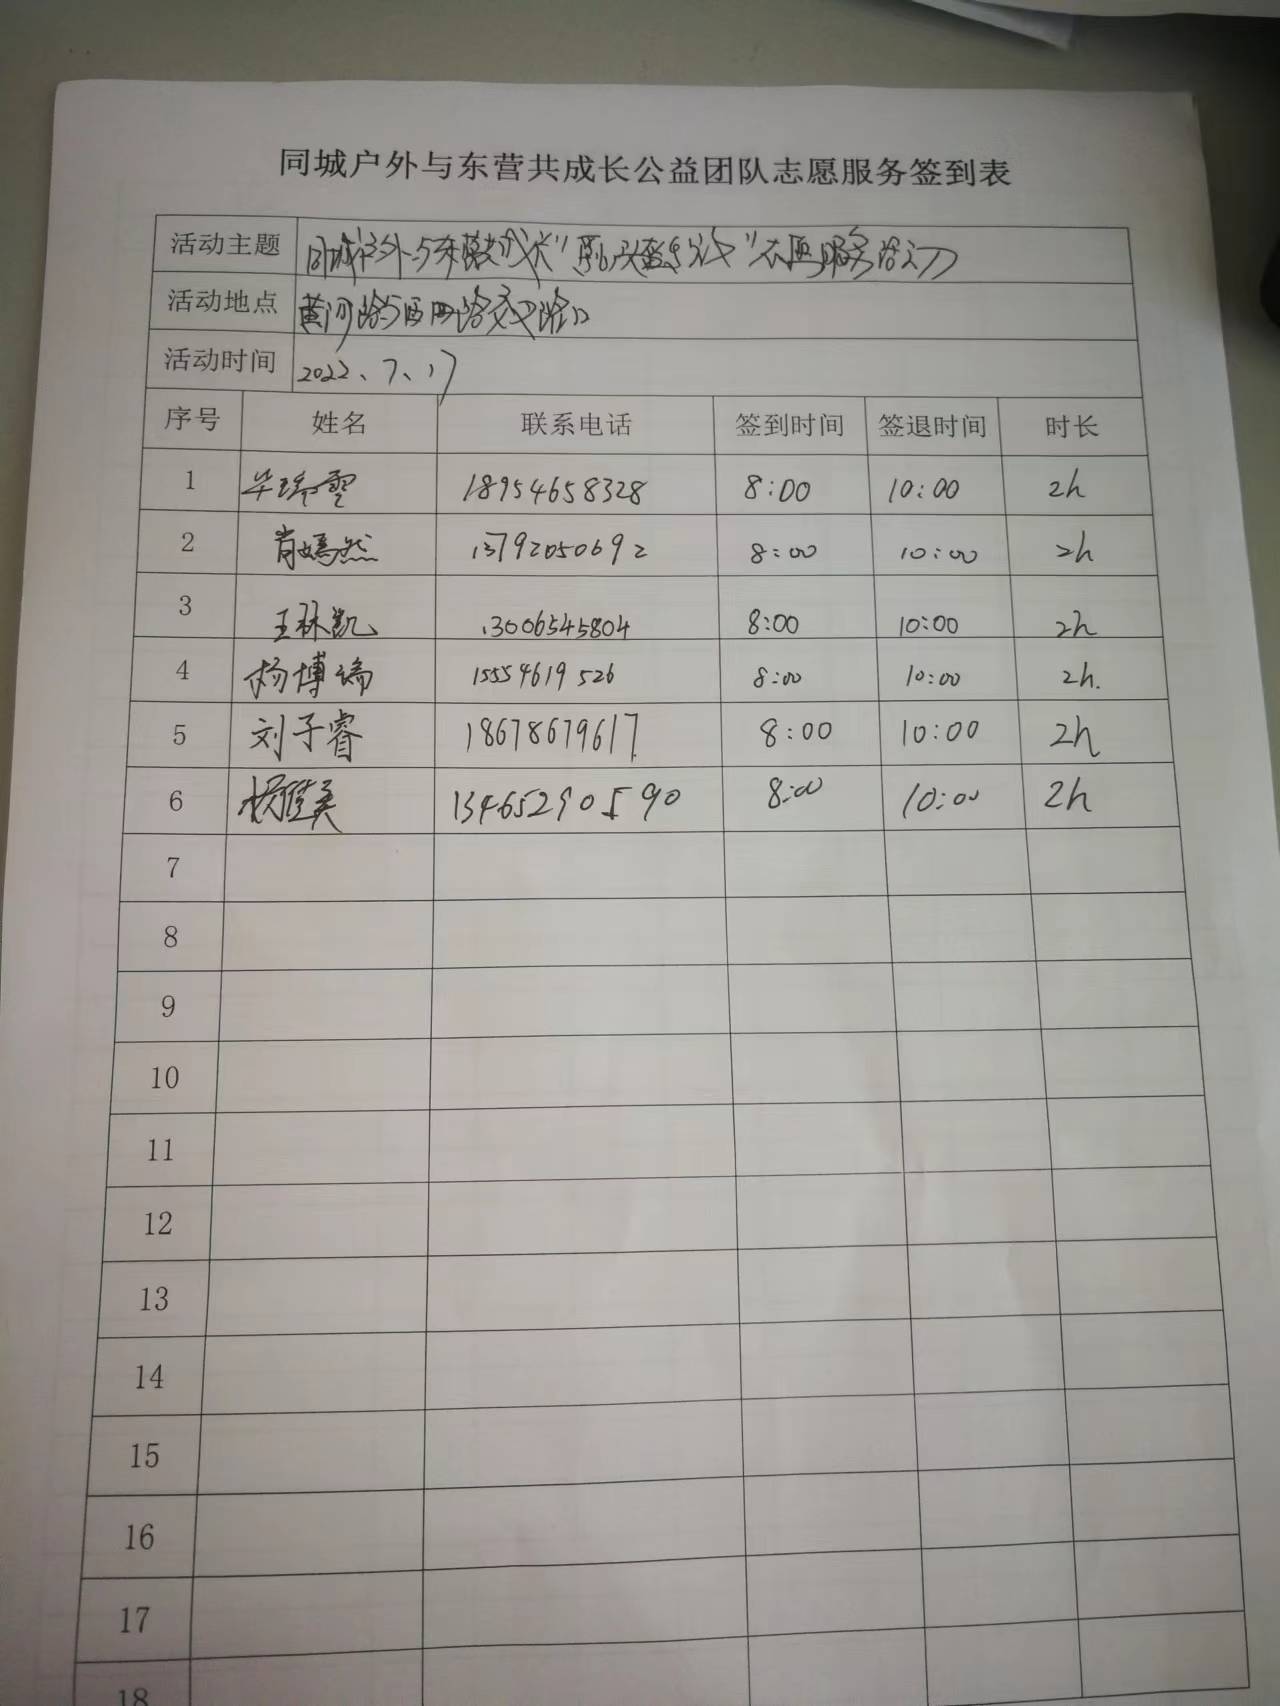 同城户外与东营共成长公益团队志愿服务签到表
活动主题 同城户外与东营共成长" "志愿服务活动
活动地点 黄河路与西四路交叉路口
活动时间 2022、7、17
序号 姓名 联系电话 签到时间 签退时间 时长
1 毕瑞雪 18954658328 8:00 10:00 2h
2 肖嫣然 13792050692 8:00 10:00 2h
3 王琳凯 13006545804 8:00 10:00 2h
4 杨博瑞 15554619526 8:00 10:00 2h.
5 刘子睿 18678679617 8:00 10:00 2h
6 杨佳美 13465290590 8:00 10:00 2h
7
8
9
10
11
12
13
14
15
16
17
18